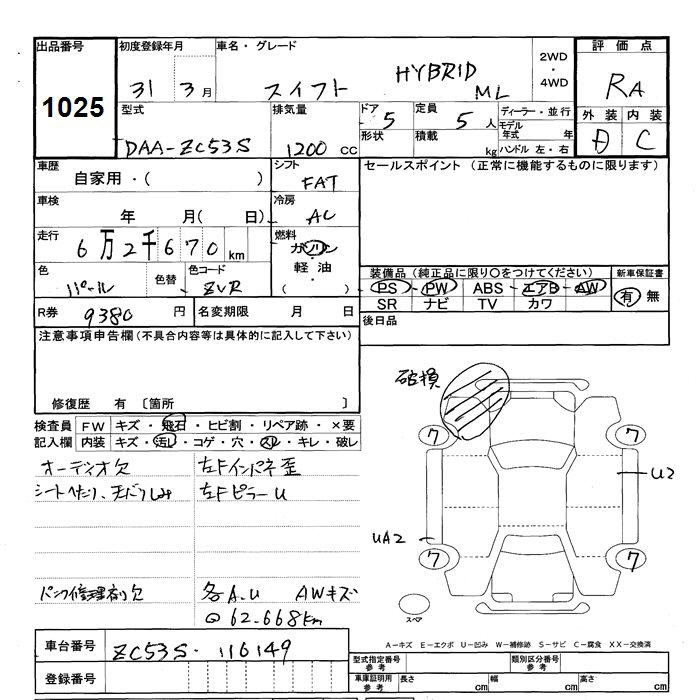 出品番号 初度登録年月 車名・グレード 2WD・4WD 評価点
1025 31 3月 スイフト HYBRID ML RA
型式 排気量 ドア 5 定員 5人 ディーラー・並行 外装 内装
DAA-ZC53S 1200 cc 形状 積載 kg モデル年式 年 ハンドル 左・右 D C
車歴 自家用・( ) シフト FAT セールスポイント (正常に機能するものに限ります)
車検 年 月( 日) 冷房 AC
走行 6万2千670 km 燃料 ガソリン・軽油・( )
色 パール 色替 色コード ZVR
装備品 (純正品に限り○をつけてください) 新車保証書
PS PW ABS エアB AW 有 無
SR ナビ TV カワ
R券 9380 円 名変期限 月 日 後日品
注意事項申告欄(不具合内容等は具体的に記入して下さい)
修復歴 有 〔箇所 〕
検査員 FW キズ・飛石・ヒビ割・リペア跡・×要
記入欄 内装 キズ・汚レ・コゲ・穴・スレ・キレ・破レ
オーディオ欠 左Fインパネ歪
シートへたり、天バリしみ 左FピラーU
パンク修理剤欠 各A.U AWキズ
62.668km
破損
7 7
U2
UA2
7 7
スペア
A-キズ E-エクボ U-凹み W-補修跡 S-サビ C-腐食 XX-交換済
車台番号 ZC53S-116149
登録番号
型式指定番号 参考 類別区分番号 参考
車庫証明用 参考 長さ cm 幅 cm 高さ cm